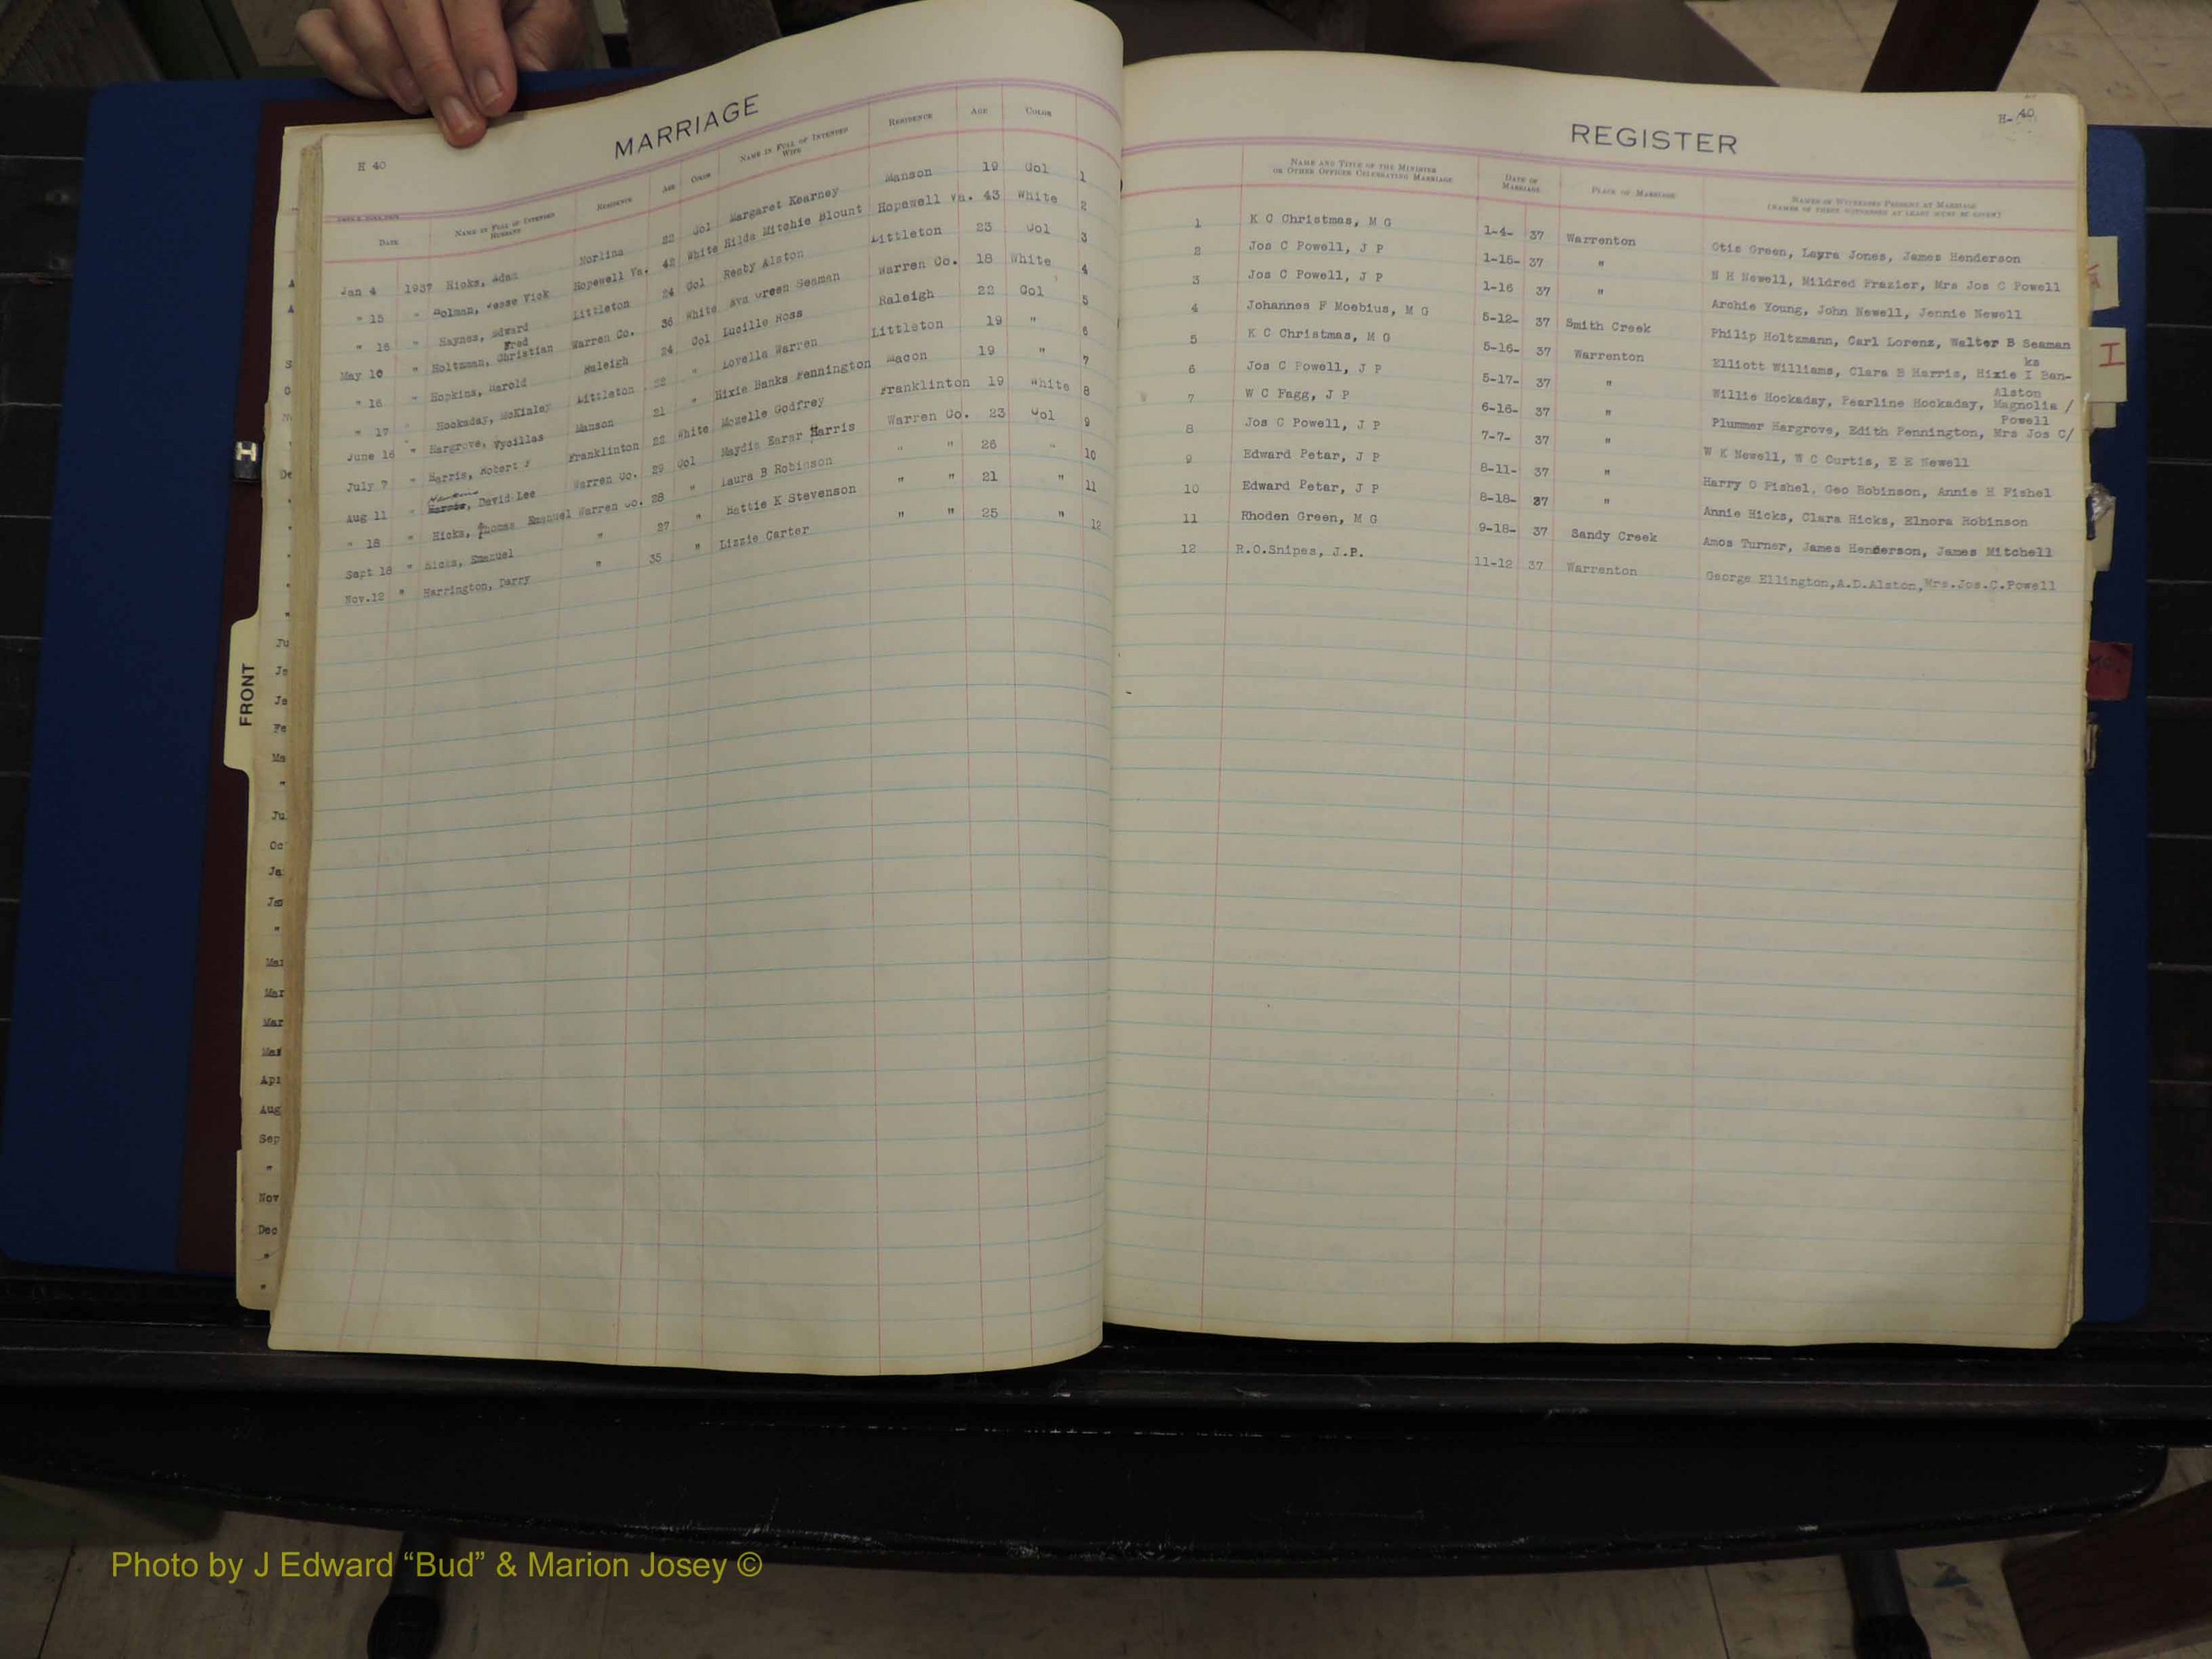 H 40
MARRIAGE
DATE NAME IN FULL OF INTENDED HUSBAND RESIDENCE AGE COLOR NAME IN FULL OF INTENDED WIFE RESIDENCE AGE COLOR
Jan 4 1937 Hicks, Adam Norlina 22 Col Margaret Kearney Manson 19 Col 1
" 15 " Holman, Jesse Vick Hopewell Va. 42 White Hilda Mitchie Blount Hopewell Va. 43 White 2
" 16 " Haynes, Edward Littleton 24 Col Resby Alston Littleton 23 Col 3
May 10 " Holtzman, Fred Christian Warren Co. 36 White Eva Green Seaman Warren Co. 18 White 4
" 16 " Hopkins, Harold Raleigh 24 Col Lucille Ross Raleigh 22 Col 5
" 17 " Hockaday, McKinley Littleton 22 " Lovella Warren Littleton 19 " 6
June 16 " Hargrove, Vycillas Manson 21 " Hixie Banks Pennington Macon 19 " 7
July 7 " Harris, Robert F Franklinton 22 White Mozelle Godfrey Franklinton 19 White 8
Aug 11 " Harris, David Lee Warren Co. 29 Col Maydis Earar Harris Warren Co. 23 Col 9
" 18 " Hicks, Thomas Emanuel Warren Co. 28 " Laura B Robinson " " 26 " 10
Sept 18 " Hicks, Emanuel " 27 " Hattie K Stevenson " " 21 " 11
Nov.12 " Harrington, Darry " 35 " Lizzie Carter " " 25 " 12
H-40
REGISTER
NAME AND TITLE OF THE MINISTER OR OTHER OFFICER CELEBRATING MARRIAGE DATE OF MARRIAGE PLACE OF MARRIAGE NAMES OF WITNESSES PRESENT AT MARRIAGE (NAMES OF THREE WITNESSES AT LEAST MUST BE GIVEN)
1 K C Christmas, M G 1-4- 37 Warrenton Otis Green, Laura Jones, James Henderson
2 Jos C Powell, J P 1-15- 37 " N H Newell, Mildred Frazier, Mrs Jos C Powell
3 Jos C Powell, J P 1-16 37 " Archie Young, John Newell, Jennie Newell
4 Johannes F Moebius, M G 5-12- 37 Smith Creek Philip Holtzmann, Carl Lorenz, Walter B Seaman
5 K C Christmas, M G 5-16- 37 Warrenton Elliott Williams, Clara B Harris, Hixie I Ban-ks
6 Jos C Powell, J P 5-17- 37 " Willie Hockaday, Pearline Hockaday, Magnolia / Alston
7 W C Fagg, J P 6-16- 37 " Plummer Hargrove, Edith Pennington, Mrs Jos C/ Powell
8 Jos C Powell, J P 7-7- 37 " W K Newell, W C Curtis, E E Newell
9 Edward Petar, J P 8-11- 37 " Harry O Fishel, Geo Robinson, Annie H Fishel
10 Edward Petar, J P 8-18- 37 " Annie Hicks, Clara Hicks, Elnora Robinson
11 Rhoden Green, M G 9-18- 37 Sandy Creek Amos Turner, James Henderson, James Mitchell
12 R.O.Snipes, J.P. 11-12 37 Warrenton George Ellington,A.D.Alston,Mrs.Jos.C.Powell
FRONT
H
I
Photo by J Edward “Bud” & Marion Josey ©